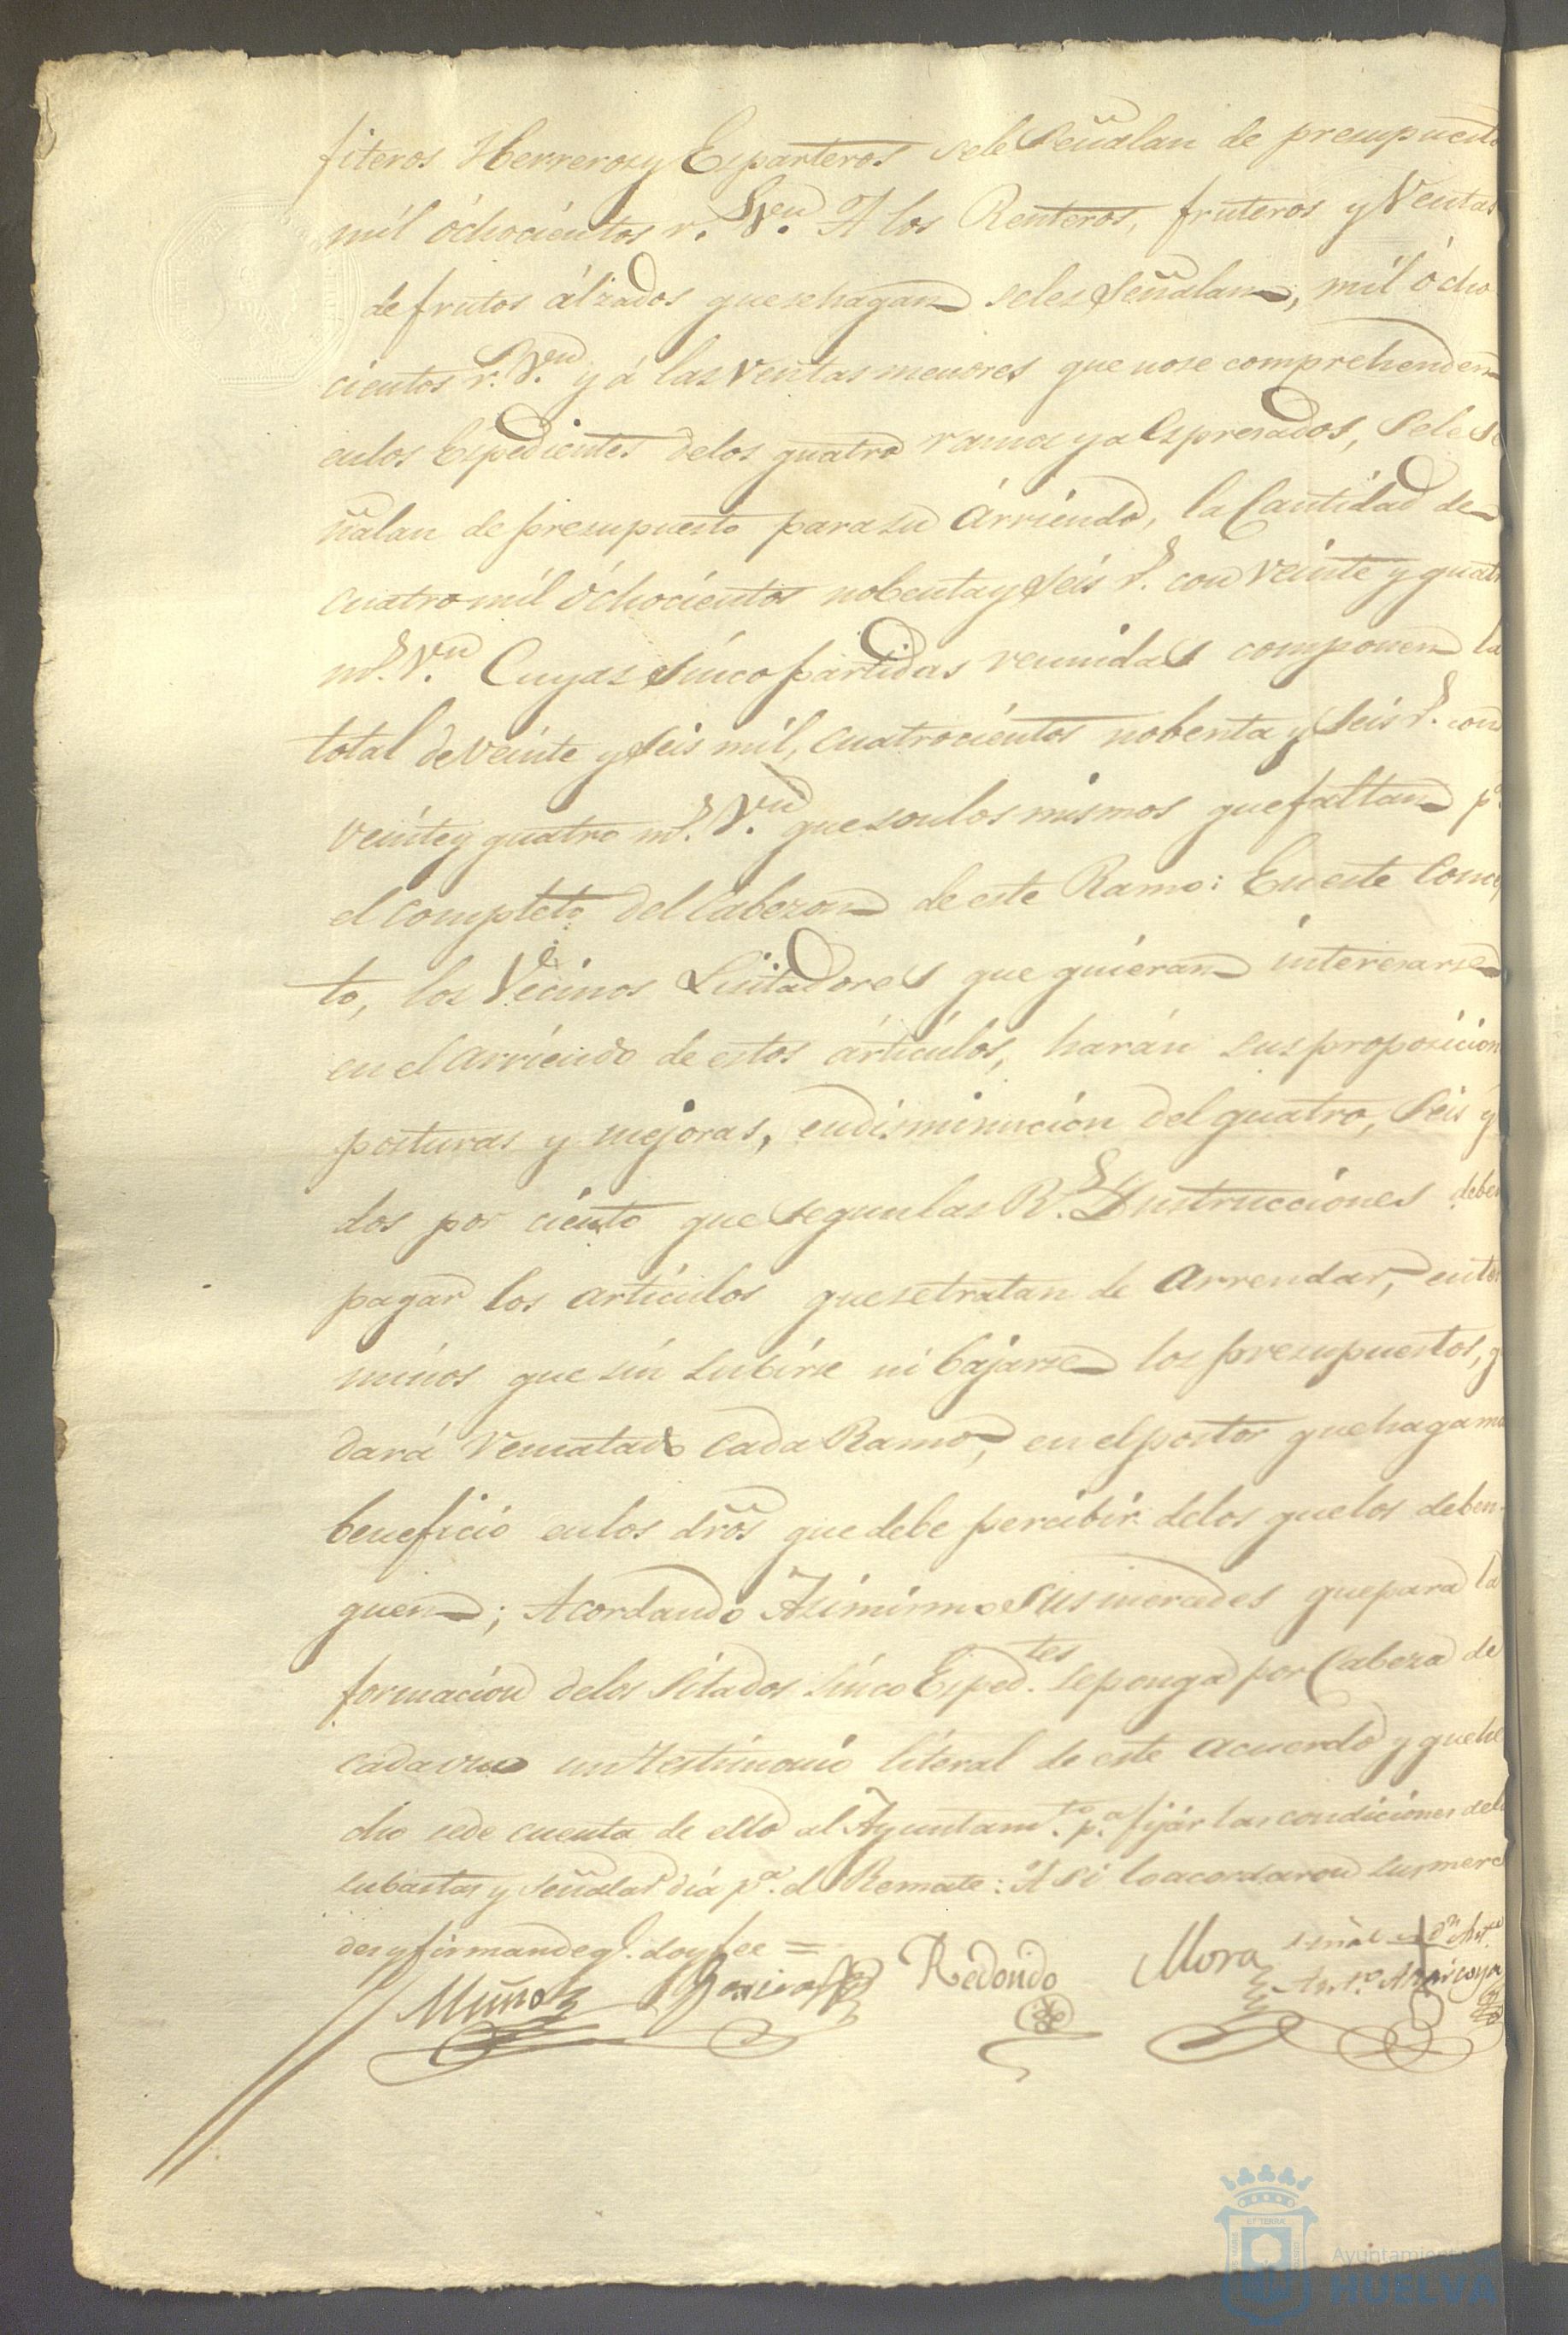 fiteros Herreros y Esparteros sele Señalan de presupuesto
mil óchocientos r.^s V.^n A los Renteros, fruteros y Ventas
de frutos álzados que se hagan seles Señalan, mil ócho
cientos r.^s V.^n y á las Ventas menores que no se comprehenden
en los Expedientes de los quatro ramos ya Espresados, Sele se
ñalan de presupuesto para su Árriendo, la Cantidad de
Cuatro mil óchocientos nobenta y Seis r.^s con Veinte y quatro
m.^s V.^n Cuyas Sinco partidas reunidas componen la
total de veinte y seis mil, cuatrocientos nobenta y Seis r.^s con
Veinte y quatro m.^s V.^n que son los mismos que faltan p.^a
el completo del Cabezon de este Ramo: En este Concep
to, los Vecinos Lisitadores que quieran interesarse
en el arriendo de estos árticulos, harán sus proposicion
posturas y mejoras, en disminucion del quatro, Seis y
dos por ciento que segun las R.^s Instrucciones deben
pagar los articulos que se tratan de Arrendar, en ter
minos que sin subirse ni bajarse los presupuestos, q
dará rematado Cada Ramo, en el postor que haga mas
beneficio en los dr̃os que debe percibir de los que los deben
guen; Acordando Asimismo Sus mercedes que para la
formacion de los Sitados Sinco Esped.^tes se ponga por Cabeza de
cada uno un Testimonio literal de este acuerdo y que he
cho se de cuenta de ello al Ayuntam.^to p.^a fijár las condiciones de la
subastas y señalar dia p.^a el Remate: Asi lo acordaron sus merce
des y firman de q.^e doy fee =
Muñoz Redondo Mora señal de d.^n Ant.^o